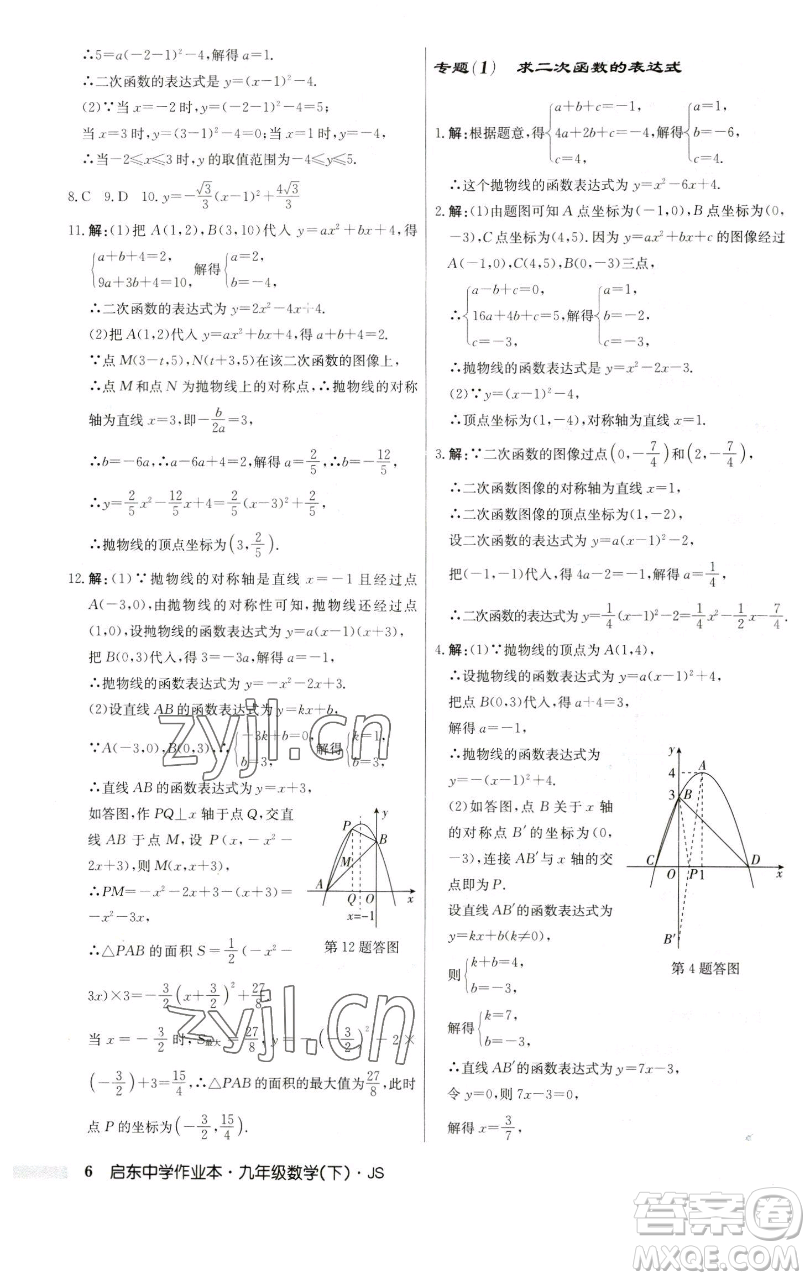 ∴5=a(-2-1)²-4,解得a=1.
∴二次函数的表达式是y=(x-1)²-4.
(2)∵当x=-2时,y=(-2-1)²-4=5;
当x=3时,y=(3-1)²-4=0;当x=1时,y=-4,
∴当-2≤x≤3时,y的取值范围为-4≤y≤5.
8.C 9.D 10.y=-√3/3(x-1)²+4√3/3
11.解:(1)把A(1,2),B(3,10)代入y=ax²+bx+4,得
{a+b+4=2, 9a+3b+4=10, 解得{a=2, b=-4,
∴二次函数的表达式为y=2x²-4x+4.
(2)把A(1,2)代入y=ax²+bx+4,得a+b+4=2,
∵点M(3-t,5),N(t+3,5)在该二次函数的图像上,
∴点M和点N为抛物线上的对称点,∴抛物线的对称
轴为直线x=3,即-b/2a=3,
∴b=-6a,∴a-6a+4=2,解得a=2/5,∴b=-12/5,
∴y=2/5x²-12/5x+4=2/5(x-3)²+2/5,
∴抛物线的顶点坐标为(3,2/5).
12.解:(1)∵抛物线的对称轴是直线x=-1且经过点
A(-3,0),由抛物线的对称性可知,抛物线还经过点
(1,0),设抛物线的函数表达式为y=a(x-1)(x+3),
把B(0,3)代入,得3=-3a,解得a=-1.
∴抛物线的函数表达式为y=-x²-2x+3.
(2)设直线AB的函数表达式为y=kx+b,
∵A(-3,0),B(0,3),∴{-3k+b=0, b=3, 解得{k=1, b=3,
∴直线AB的函数表达式为y=x+3,
如答图,作PQ⊥x轴于点Q,交直
线AB于点M,设P(x,-x²-
2x+3),则M(x,x+3),
∴PM=-x²-2x+3-(x+3)=
-x²-3x,
∴△PAB的面积S=1/2(-x²-
3x)×3=-3/2(x+3/2)²+27/8.
当x=-3/2时,S最大=27/8,y=-(-3/2)²-2×
(-3/2)+3=15/4,∴△PAB的面积的最大值为27/8,此时
点P的坐标为(-3/2,15/4).
y
P
B
M
A
Q O x
x=-1
第12题答图
专题(1) 求二次函数的表达式
1.解:根据题意,得{a+b+c=-1, 4a+2b+c=-4, c=4, 解得{a=1, b=-6, c=4.
∴这个抛物线的函数表达式为y=x²-6x+4.
2.解:(1)由题图可知A点坐标为(-1,0),B点坐标为(0,
-3),C点坐标为(4,5).因为y=ax²+bx+c的图像经过
A(-1,0),C(4,5),B(0,-3)三点,
∴{a-b+c=0, 16a+4b+c=5, c=-3, 解得{a=1, b=-2, c=-3,
∴抛物线的函数表达式是y=x²-2x-3.
(2)∵y=(x-1)²-4,
∴顶点坐标为(1,-4),对称轴为直线x=1.
3.解:∵二次函数的图像过点(0,-7/4)和(2,-7/4),
∴二次函数图像的对称轴为直线x=1,
∴二次函数图像的顶点坐标为(1,-2),
设二次函数的表达式为y=a(x-1)²-2,
把(-1,-1)代入,得4a-2=-1,解得a=1/4,
∴二次函数的表达式为y=1/4(x-1)²-2=1/4x²-1/2x-7/4.
4.解:(1)∵抛物线的顶点为A(1,4),
∴设抛物线的函数表达式为y=a(x-1)²+4,
把点B(0,3)代入,得a+4=3,
解得a=-1,
∴抛物线的函数表达式为
y=-(x-1)²+4.
(2)如答图,点B关于x轴
的对称点B′的坐标为(0,
-3),连接AB′与x轴的交
点即为P.
设直线AB′的函数表达式为
y=kx+b(k≠0),
则{k+b=4, b=-3,
解得{k=7, b=-3,
∴直线AB′的函数表达式为y=7x-3,
令y=0,则7x-3=0,
解得x=3/7,
y
4 A
3 B
C O P 1 D x
B′
第4题答图
zyjl.cn
zyjl.cn
6 启东中学作业本·九年级数学(下)·JS
答案圈
MXQE.COM